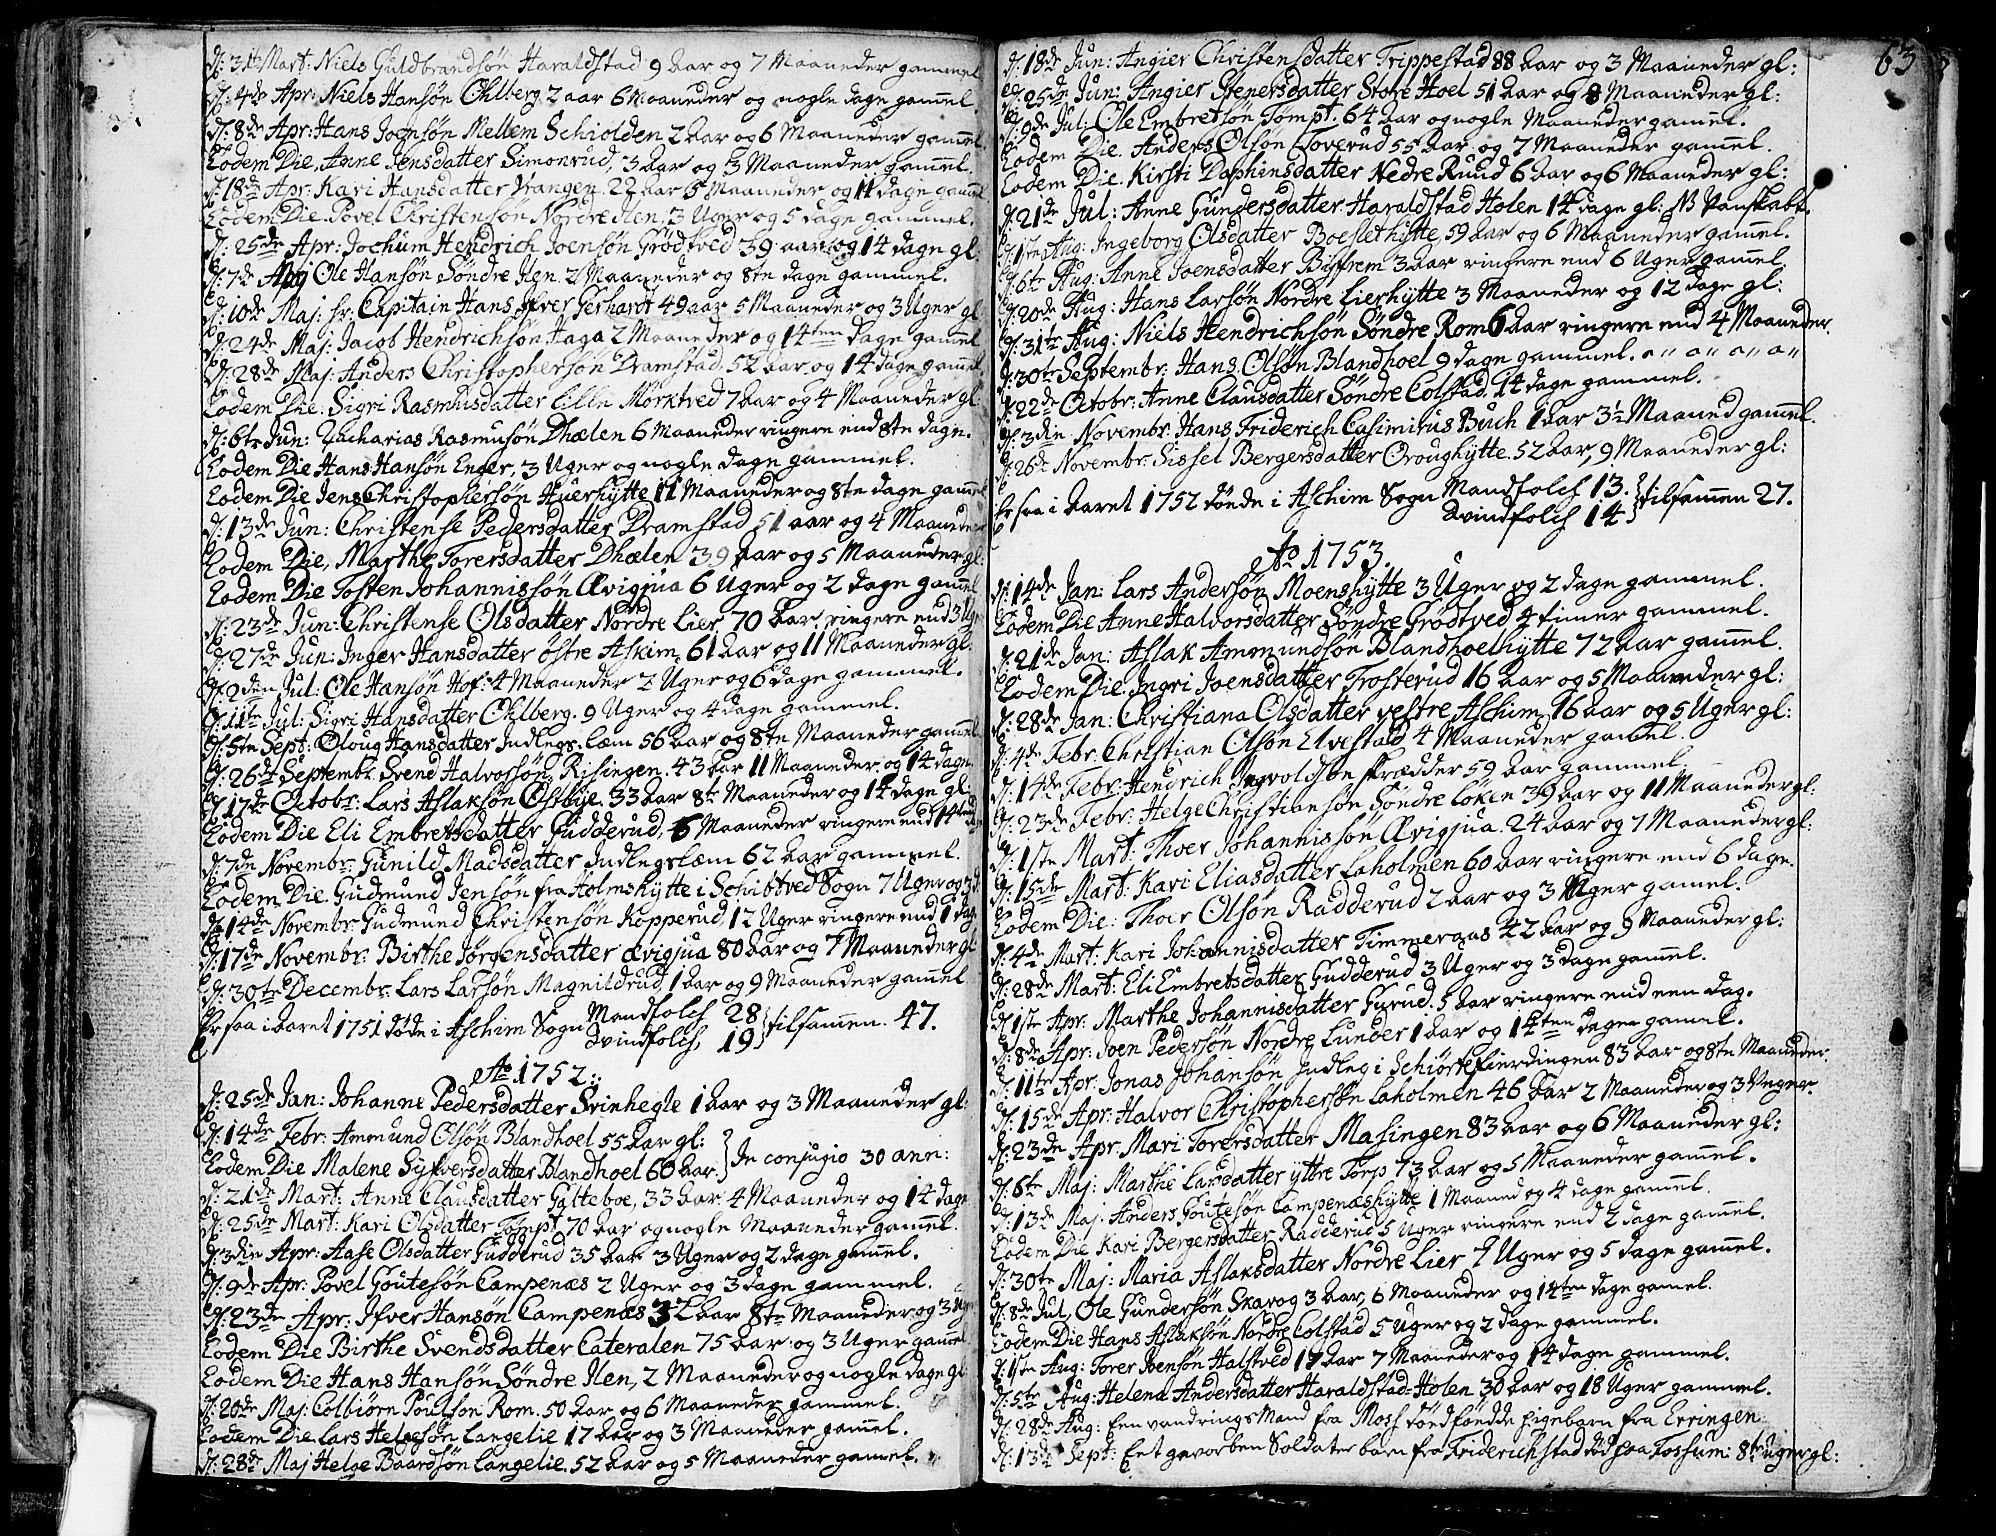 D: 31te Mart: Niels Guldbrandsøn Haraldstad 9 Aar og 7 Maaneder gammel
D: 4de Apr: Niels Hansøn Ohlberg 2 aar 6 Maaneder og nogle dage gamel.
D: 8de Apr: Hans Joensøn Mellem Schiolden 2 Aar og 6 Maaneder gamel
Eodem Die, Anne Jensdatter Simonrud, 3 Aar og 3 Maaneder gamel.
D: 18de Apr: Kari Hansdatter Vrangen. 22 Aar 5 Maaneder og 11 dage gamel
Eodem Die. Povel Christensøn Nordre Ilen. 3 Uger og 5 dage gammel.
D: 25de Apr: Jochum Hendrich Joensøn Grødtved 39 aar og 14 dage gl
D: 7de Maj Ole Hansøn Søndre Ilen 2 Maaneder og 8te dage gammel.
D: 10de Maj: hr. Capitain Hans Gerhardt 49 aar 5 Maaneder og 3 Uger gl
D: 24de Maj: Jacob Hendrichsøn Haga 2 Maaneder og 14ten dage gamel
D: 28de Maj: Anders Christophersøn Dramstad, 52 Aar og 14 dage gamel.
Eodem Die: Sigri Rasmusdatter Lille Mørktved 7 Aar og 4 Maaneder gl
D: 6te Jun: Zacharias Rasmusøn Dhælen 6 Maaneder ringere end 8te dage.
Eodem Die Hans Hansøn Enger, 3 Uger og nogle dage gammel.
Eodem Die Jens Christophersøn Huerhytte 11 Maaneder og 8te dage gamel
D: 13de Jun: Christense Pedersdatter Dramstad 51 aar og 4 Maaneder
Eodem Die, Marthe Torersdatter Dhælen 39 Aar og 5 Maaneder gl:
Eodem Die Tosten Johannissøn Ævigjua 6 Uger og 2 dage gamel
D: 23de Jun: Christense Olsdatter Nordre Lier, 70 Aar ringere end 3 Uger
D: 27de Jun: Inger Hansdatter østre Askim, 61 Aar og 11 Maaneder gl.
D: 2den Jul: Ole Hansøn Hof: 4 Maaneder 2 Uger og 6 dage gammel.
D: 11te Jul: Sigri Hansdatter Ohlberg. 9 Uger og 4 dage gammel.
D: 5te Sept: Oloug Hansdatter Indlegs-læm 56 Aar og 8te Maaneder gamel
D: 26de Septembr. Svend Halvorsøn Risingen. 43 Aar 11 Maaneder og 14 dage
D: 17de Octobr: Lars Aslaksøn Østbye. 33 Aar 8te Maaneder og 14 dage gl:
Eodem Die Eli Embretsdatter Gudderud, 5 Maaneder ringere end 14ten
D: 7de Novembr: Gunild Madsdatter Indlegslæm 62 Aar gammel.
Eodem Die. Gudmund Jensøn fra Holmshytte i Schibtved Sogn 7 Uger og 3 d
D: 14de Novembr: Gudmund Christensøn Kopperud, 12 Uger ringere end 1 dag
D: 17de Novembr: Birthe Jørgensdatter Ævigjua 80 Aar og 7 Maaneder gl
D: 30te Decembr: Lars Larsøn Magnildrud, 1 Aar og 9 Maaneder gamel
Er saa i Aaret 1751 døde i Aschim Sogn Mandfolch 28 } tilsammen. 47.
Qvindfolch, 19
Ao 1752:
D: 25de Jan: Johanne Pedersdatter Svinhegle 1 Aar og 3 Maaneder gl:
D: 14de Febr: Amund Olsøn Blandhoel 55 Aar gl: } In conjugio 30 ann:
Eodem Die Malene Syfversdatter Blandhoel 60 Aar.
D: 21de Mart: Anne Clausdatter Gatteboe, 33 Aar 4 Maaneder og 14 dage
D: 25de Mart: Kari Olsdatter Tømpt 70 Aar og nogle Maaneder gamel.
D: 3die Apr: Aase Olsdatter Gudderud 35 Aar 3 Uger og 2 dage gamel.
D: 9de Apr: Povel Goutesøn Campenæs 2 Uger og 3 dage gammel.
D: 23de Apr: Ifver Hansøn Campenæs 32 Aar 8te Maaneder og 3 Ug
Eodem Die Birthe Svendsdatter Cateralen 75 Aar og 3 Uger gamel
Eodem Die Hans Hansøn Søndre Ilen, 2 Maaneder og nogle dage gl
D: 20de Maj: Colbiørn Poulsøn Rom. 50 Aar og 6 Maaneder gammel.
Eodem Die Lars Helgesøn Langelie 17 Aar og 3 Maaneder gamel.
D: 28de Maj Helge Baardsøn Langelie. 52 Aar og 5 Maaneder gamel.
63
D: 18de Jun: Angier Christensdatter Trippestad 88 Aar og 3 Maaneder gl:
D: 25de Jun: Angier Stenersdatter Store Hoel 51 Aar og 8 Maaneder gl:
D: 9de Jul: Ole Embretsøn Tømpt. 64 Aar og nogle Maaneder gamel.
Eodem Die. Anders Olsøn Loverud 55 Aar og 7 Maaneder gamel.
Eodem Die. Kirsti Daphinsdatter Nedre Ruud 6 Aar og 6 Maaneder gl:
D: 21de Jul: Anne Gundersdatter Haraldstad Holen 14 dage gl: NB Vanskabt.
D: 1ste Aug: Ingeborg Olsdatter Boeslethytte, 59 Aar og 6 Maaneder gamel.
D: 6te Aug: Anne Joensdatter Bissrem 3 Aar ringere end 6 Uger gamel
D: 20de Aug: Hans Larsøn Nordre Lierhytte 3 Maaneder og 12 dage gl:
D: 31te Aug: Niels Hendrichsøn Søndre Rom 6 Aar ringere end 4 Maaneder.
D: 30te Septembr: Hans Olsøn Blandhoel 9 dage gammel.
D: 22de Octobr: Anne Clausdatter Søndre Colstad. 14 dage gammel.
D: 3die Novembr: Hans Friderich Casimirus Buch 1 Aar 3½ Maaned gamel.
D: 26de Novembr: Sissel Bergersdatter Oroughytte. 52 Aar, 9 Maaneder gl:
Er saa i Aaret 1752 døde i Aschim Sogn Mandfolch 13. } tilsammen 27.
Qvindfolch 14
Ao 1753.
D: 14de Jan: Lars Andersøn Moenshytte 3 Uger og 2 dage gammel.
Eodem Die Anne Halvorsdatter Søndre Grødtved 4 timer gammel.
D: 21de Jan: Aslak Amundsøn Blandhoelhytte 72 Aar gamel.
Eodem Die: Ingri Joensdatter Trosterud 16 Aar og 5 Maaneder gl:
D: 28de Jan: Christiana Olsdatter vestre Aschim, 16 Aar og 5 Uger gl:
D: 4de Febr: Christian Olsøn Elvestad 4 Maaneder gamel.
D: 14de Febr: Hendrich Ingvoldsøn skrædder 59 Aar gammel.
D: 23de Febr: Helge Christiansøn Søndre Løken 39 Aar og 11 Maaneder gl:
D: 1ste Mart: Thoer Johannissøn Ævigjua. 24 Aar og 7 Maaneder gl:
D: 15de Mart: Kari Eliasdatter Laholmen 60 Aar ringere end 6 dage.
Eodem Die: Thoer Olsøn Radderud 2 Aar og 3 Uger gamel.
D: 4de Mart: Kari Johannisdatter Timmeraas 42 Aar og 9 Maaneder gl:
D: 28de Mart: Eli Embretsdatter Gudderud 3 Uger og 3 dage gamel.
D: 1ste Apr: Marthe Johannisdatter Gurud. 5 Aar ringere end een dag.
D: 8de Apr: Joen Pedersøn Nordre Lunder 1 Aar og 14ten dage gamel.
D: 11te Apr: Jonas Johansøn Indleg i Schiørtefierdingen 83 Aar og 8te Maaneder.
D: 15de Apr: Halvor Christophersøn Laholmen 46 Aar 2 Maaneder og 3 Uger.
D: 23de Apr: Mari Torersdatter Masingen 83 Aar og 6 Maaneder gl:
D: 6te Maj: Marthe Larsdatter yttre Torp 73 Aar og 5 Maaneder gamel.
D: 13de Maj: Anders Goutesøn Campenæshytte 1 Maaned og 4 dage gamel.
Eodem Die Kari Bergersdatter Radderud 5 Uger ringere end 2 dage gamel.
D: 30te Maj: Maria Aslaksdatter Nordre Lier 7 Uger og 5 dage gamel.
D: 8de Jul, Ole Gundersøn Skavog 3 Aar, 6 Maaneder og 14ten dage gamel.
Eodem Die Hans Aslaksøn Nordre Colstad 5 Uger og 2 dage gammel.
D: 1ste Aug: Torer Joensøn Halstved 17 Aar 7 Maaneder og 14 dage gammel.
D: 5te Aug: Helena Andersdatter Haraldstad-Holen 30 Aar og 18 Uger gammel.
D: 28de Aug: Een vandrings Mand fra Moss dødfødde pigebarn fra Erringen.
D: 13de Sept: Eet gavorben Soldater barn fra Friderichstad død paa Fossum: 8te uger gl: